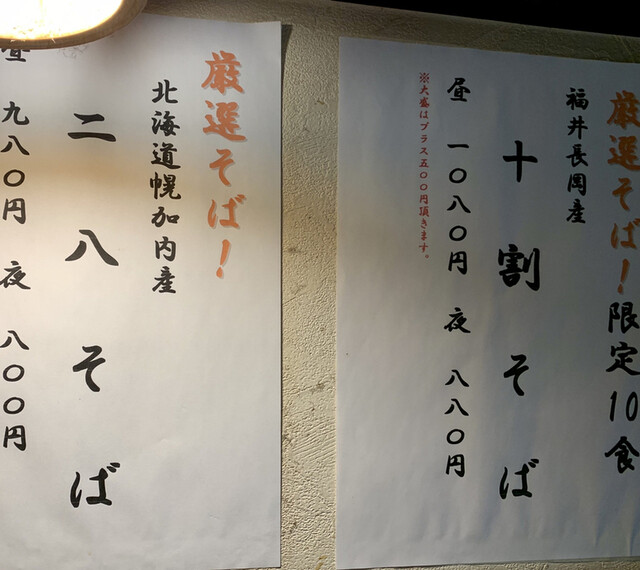 厳選そば！限定10食
福井長岡産
十割そば
昼 一〇八〇円 夜 八八〇円
※大盛はプラス五〇〇円頂きます。
厳選そば！
北海道幌加内産
二八そば
昼 九八〇円 夜 八〇〇円